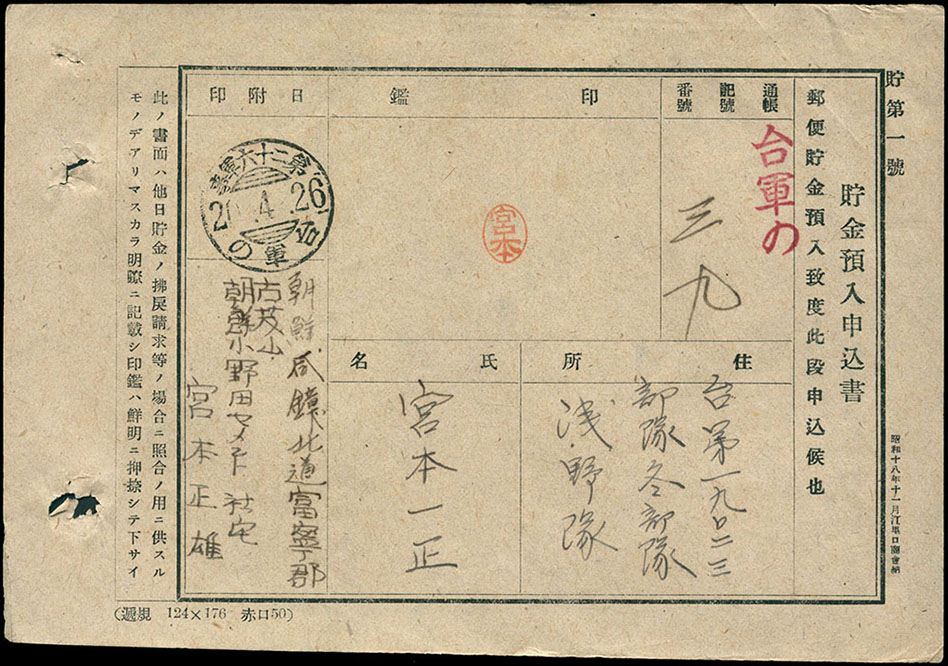 貯第一號
貯金預入申込書
昭和十八年十一月江里口商會納
郵便貯金預入致度此段申込候也
通帳
記號
番號
台軍の
三九
印
鑑
宮本
住
所
台第一九〇二三
部隊冬部隊
浅野隊
氏
名
宮本一正
日附印
第二十六軍事
20.4.26
台軍の
朝鮮咸鏡北道富寧郡
古茂山
朝鮮小野田セメント社宅
宮本正雄
此ノ書面ハ他日貯金ノ拂戻請求等ノ場合ニ照合ノ用ニ供スル
モノデアリマスカラ明瞭ニ記載シ印鑑ハ鮮明ニ押捺シテ下サイ
(遞規 124×176 赤口50)